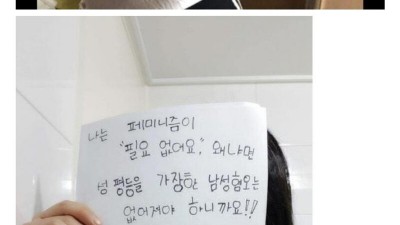 나는 페미니즘이
"필요 없어요." 왜냐면
성 평등을 가장한 남성혐오는
없어져야 하니까요!!